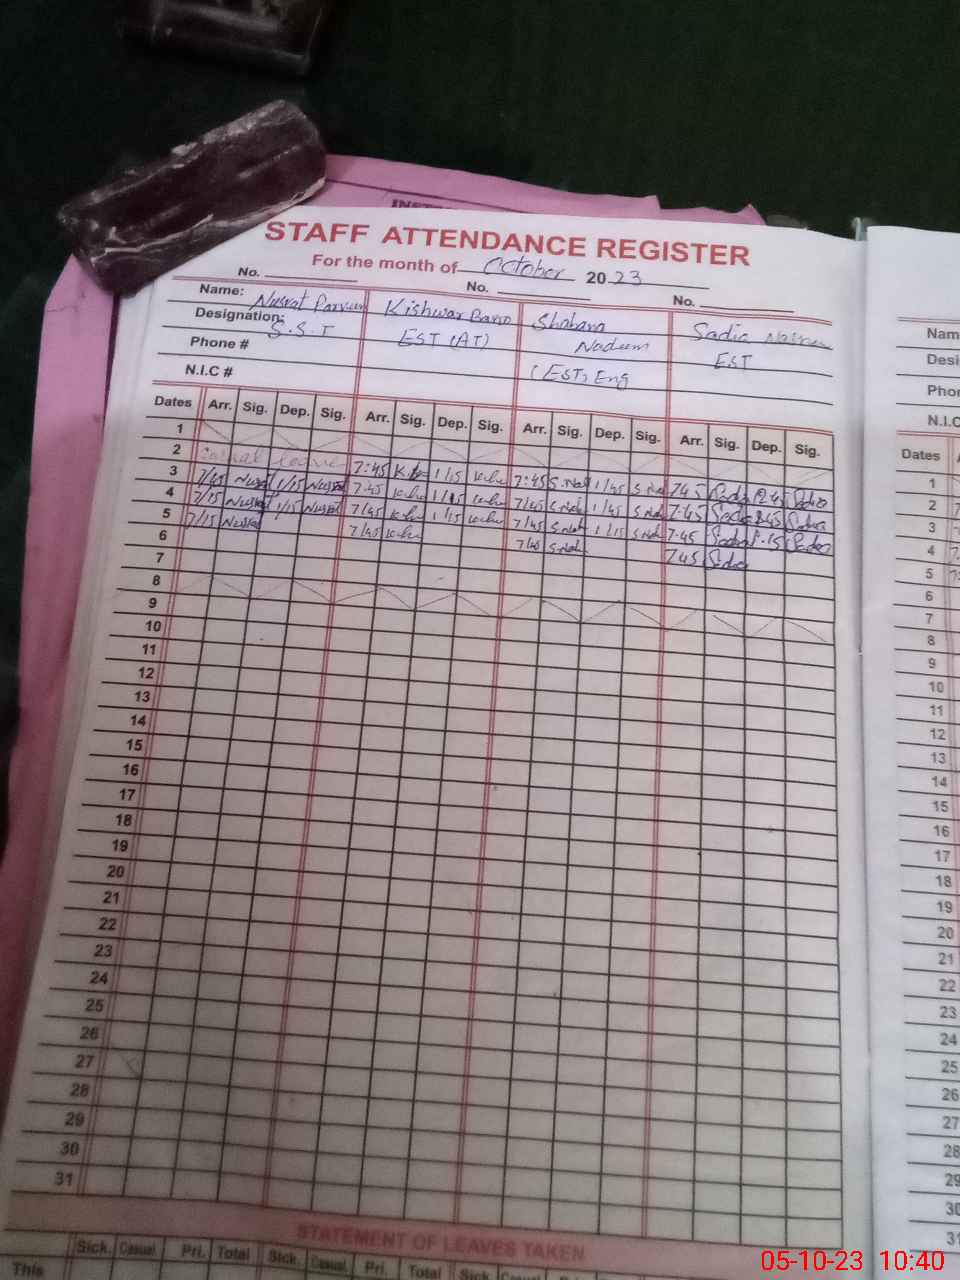 INST
STAFF ATTENDANCE REGISTER
For the month of October 2023
No. No. No.
Name: Nusrat Parveen Kishwar Bano Shabana Nadeem Sadia
Designation: S.S.T EST (AT) (EST) Eng EST
Phone #
N.I.C #
Dates Arr. Sig. Dep. Sig. Arr. Sig. Dep. Sig. Arr. Sig. Dep. Sig. Arr. Sig. Dep. Sig.
1
2 Casual leave 7:45 1/15 7:45 1/45 7:45 12:45 Sadia
3 7/45 Nusrat 1/15 Nusrat 7:45 1/15 7/45 1/45 7:45 Sadia
4 7/15 Nusrat 1/15 Nusrat 7/45 1/15 7/45 1/15 7:45 1:15 Sadia
5 7/15 Nusrat 7/45 7/45 7:45 Sadia
6
7
8
9
10
11
12
13
14
15
16
17
18
19
20
21
22
23
24
25
26
27
28
29
30
31
STATEMENT OF LEAVES TAKEN
Sick. Casual Pri. Total Sick. Casual Pri. Total Sick. Casual
This
Nam
Desi
Phor
N.I.C
Dates
1
2
3
4
5
6
7
8
9
10
11
12
13
14
15
16
17
18
19
20
21
22
23
24
25
26
27
28
29
30
31
05-10-23 10:40